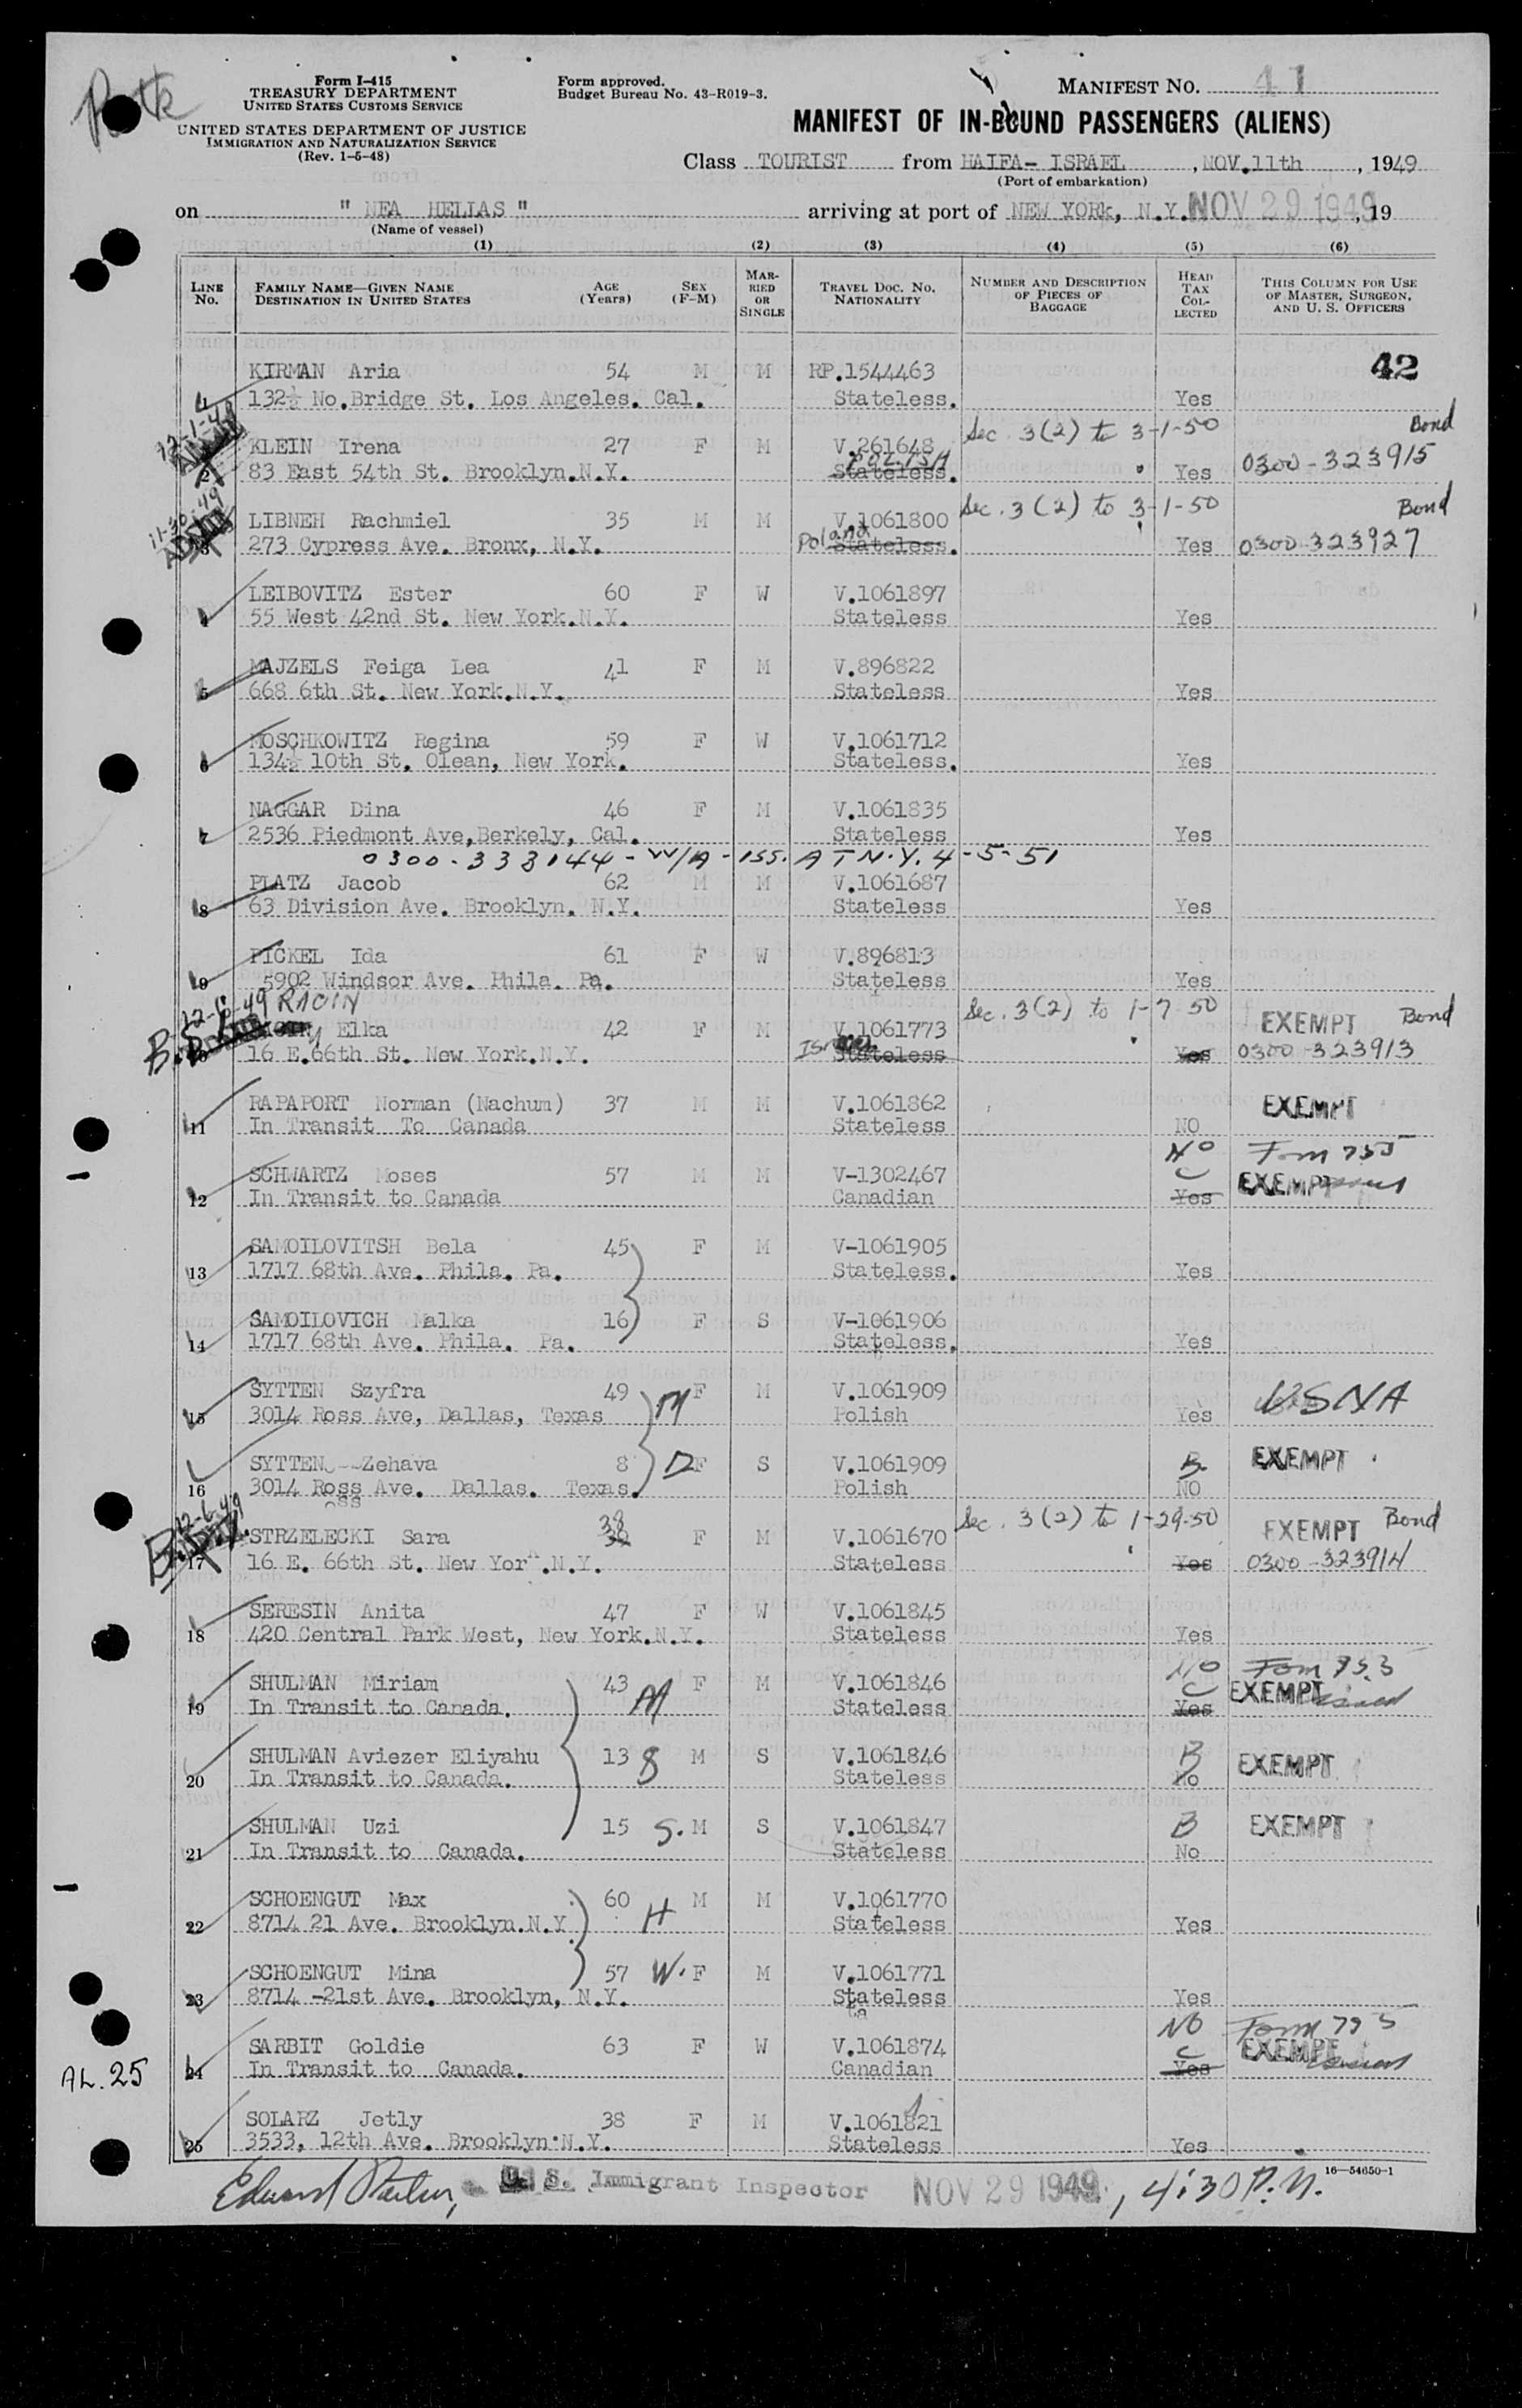 Rotk
Form I-415
TREASURY DEPARTMENT
UNITED STATES CUSTOMS SERVICE
UNITED STATES DEPARTMENT OF JUSTICE
IMMIGRATION AND NATURALIZATION SERVICE
(Rev. 1-5-48)
Form approved.
Budget Bureau No. 43-R019-3.
MANIFEST NO. 41
MANIFEST OF IN-BOUND PASSENGERS (ALIENS)
Class TOURIST from HAIFA- ISRAEL, NOV.11th, 1949
(Port of embarkation)
on " NEA HELLAS " arriving at port of NEW YORk, N.Y. NOV 29 1949, 19
(Name of vessel)
(1) (2) (3) (4) (5) (6)
LINE No. FAMILY NAME—GIVEN NAME DESTINATION IN UNITED STATES AGE (Years) SEX (F-M) MARRIED OR SINGLE TRAVEL DOC. No. NATIONALITY NUMBER AND DESCRIPTION OF PIECES OF BAGGAGE HEAD TAX COLLECTED THIS COLUMN FOR USE OF MASTER, SURGEON, AND U. S. OFFICERS
KIRMAN Aria 54 M M RP.1544463 42
1 132½ No.Bridge St. Los Angeles. Cal. Stateless. Yes
12-1-49 Sec. 3(2) to 3-1-50 Bond
KLEIN Irena 27 F M V.261648 0300-323915
POLISH
2 83 East 54th St. Brooklyn.N.Y. Stateless. Yes
11-30-49 Sec. 3(2) to 3-1-50 Bond
LIBNEH Rachmiel 35 M M V.1061800
3 273 Cypress Ave. Bronx, N.Y. Poland Stateless. Yes 0300-323927
LEIBOVITZ Ester 60 F W V.1061897
4 55 West 42nd St. New York.N.Y. Stateless Yes
MAJZELS Feiga Lea 41 F M V.896822
5 668 6th St. New York.N.Y. Stateless Yes
MOSCHKOWITZ Regina 59 F W V.1061712
6 134½ 10th St. Olean, New York. Stateless. Yes
NAGGAR Dina 46 F M V.1061835
7 2536 Piedmont Ave,Berkely, Cal. Stateless Yes
0300-338144-W/A-ISS. AT N.Y. 4-5-51
PLATZ Jacob 62 M M V.1061687
8 63 Division Ave. Brooklyn. N.Y. Stateless Yes
PICKEL Ida 61 F W V.896813
9 5902 Windsor Ave. Phila. Pa. Stateless Yes
12-6-49 RACIN Sec. 3(2) to 1-7-50 EXEMPT Bond
Elka 42 F M V.1061773
10 16 E.66th St. New York.N.Y. Israel Stateless Yes 0300-323913
RAPAPORT Norman (Nachum) 37 M M V.1061862 EXEMPT
11 In Transit To Canada Stateless NO
NO Form 755
SCHWARTZ Moses 57 M M V-1302467 C EXEMPT
12 In Transit to Canada Canadian Yes
SAMOILOVITSH Bela 45 F M V-1061905
13 1717 68th Ave. Phila. Pa. Stateless. Yes
SAMOILOVICH Malka 16 F S V-1061906
14 1717 68th Ave. Phila. Pa. Stateless. Yes
SYTTEN Szyfra 49 M F M V.1061909 USNA
15 3014 Ross Ave, Dallas, Texas Polish Yes
SYTTEN Zehava 8 D F S V.1061909 B. EXEMPT
16 3014 Ross Ave. Dallas. Texas. Polish NO
oss
12-6-49 38 Sec. 3(2) to 1-29-50 EXEMPT Bond
STRZELECKI Sara F M V.1061670
17 16 E. 66th St. New York.N.Y. Stateless Yes 0300-323914
SERESIN Anita 47 F W V.1061845
18 420 Central Park West, New York.N.Y. Stateless Yes
NO Form
SHULMAN Miriam 43 M F M V.1061846 C EXEMPT
19 In Transit to Canada. Stateless Yes
SHULMAN Aviezer Eliyahu 13 S M S V.1061846 B EXEMPT
20 In Transit to Canada. Stateless No
SHULMAN Uzi 15 S. M S V.1061847 B EXEMPT
21 In Transit to Canada. Stateless No
SCHOENGUT Max 60 H M M V.1061770
22 8714 21 Ave. Brooklyn.N.Y Stateless Yes
SCHOENGUT Mina 57 W. F M V.1061771
23 8714 -21st Ave. Brooklyn, N.Y. Stateless Yes
ta
NO Form
SARBIT Goldie 63 F W V.1061874 C EXEMPT
24 In Transit to Canada. Canadian Yes
AL. 25
SOLARZ Jetly 38 F M V.1061821
25 3533, 12th Ave. Brooklyn N.Y. Stateless Yes
16—54650-1
Edward U. S. Immigrant Inspector NOV 29 1949, 4:30 P.M.